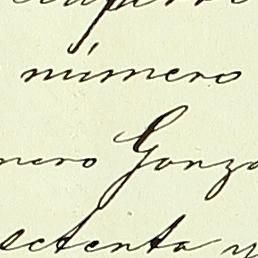 número
nero Gonza
setenta y